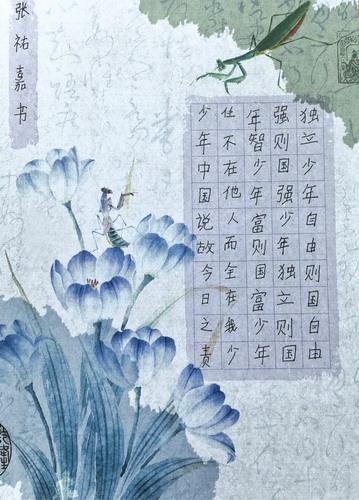 张祐嘉书
少年中国说故今日之责
任不在他人而全在我少
年智少年富则国富少年
强则国强少年独立则国
独立少年自由则国自由